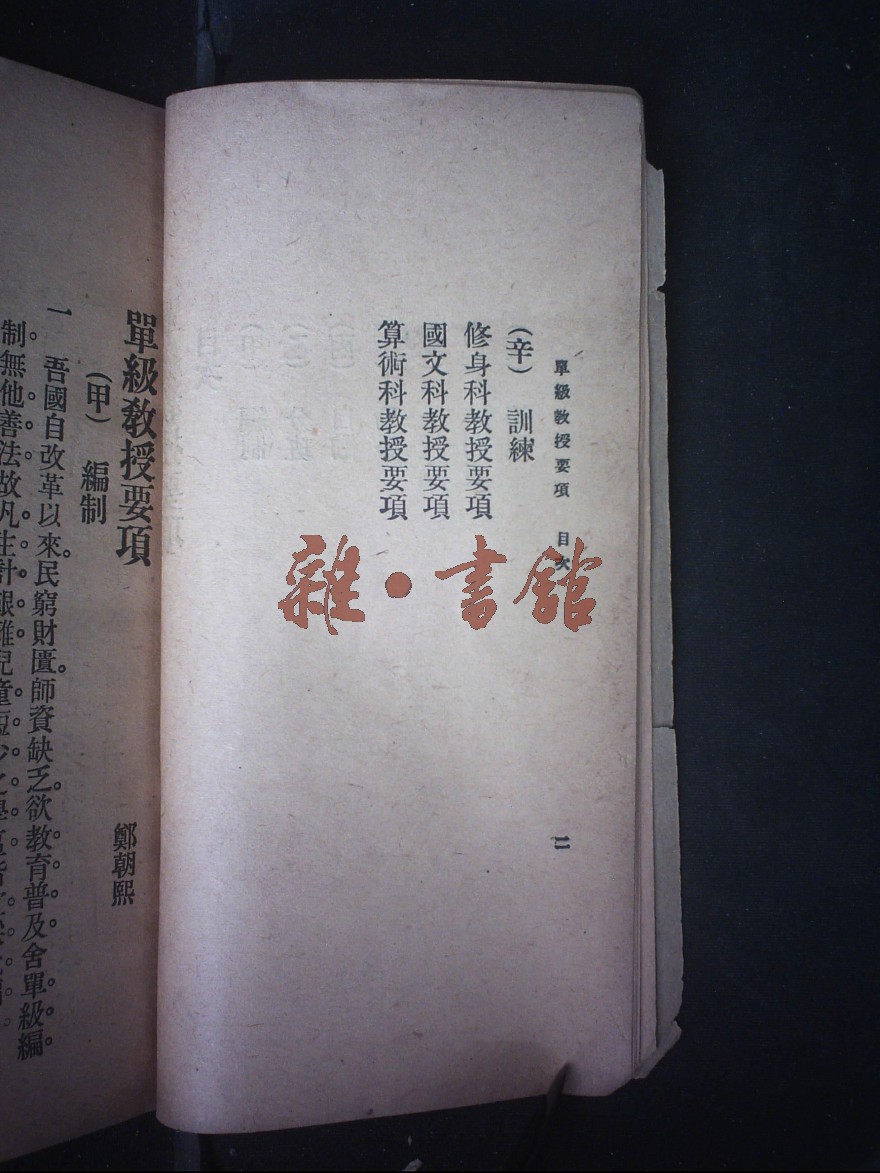 單級教授要項　目次
（辛）　訓練
修身科教授要項
國文科教授要項
算術科教授要項
二
雜・書館
單級教授要項
鄭朝熙
（甲）　編制
一　吾國自改革以來。民窮財匱。師資缺乏。欲教育普及。舍單級編。
制。無他善法。故凡生計艱難兒童